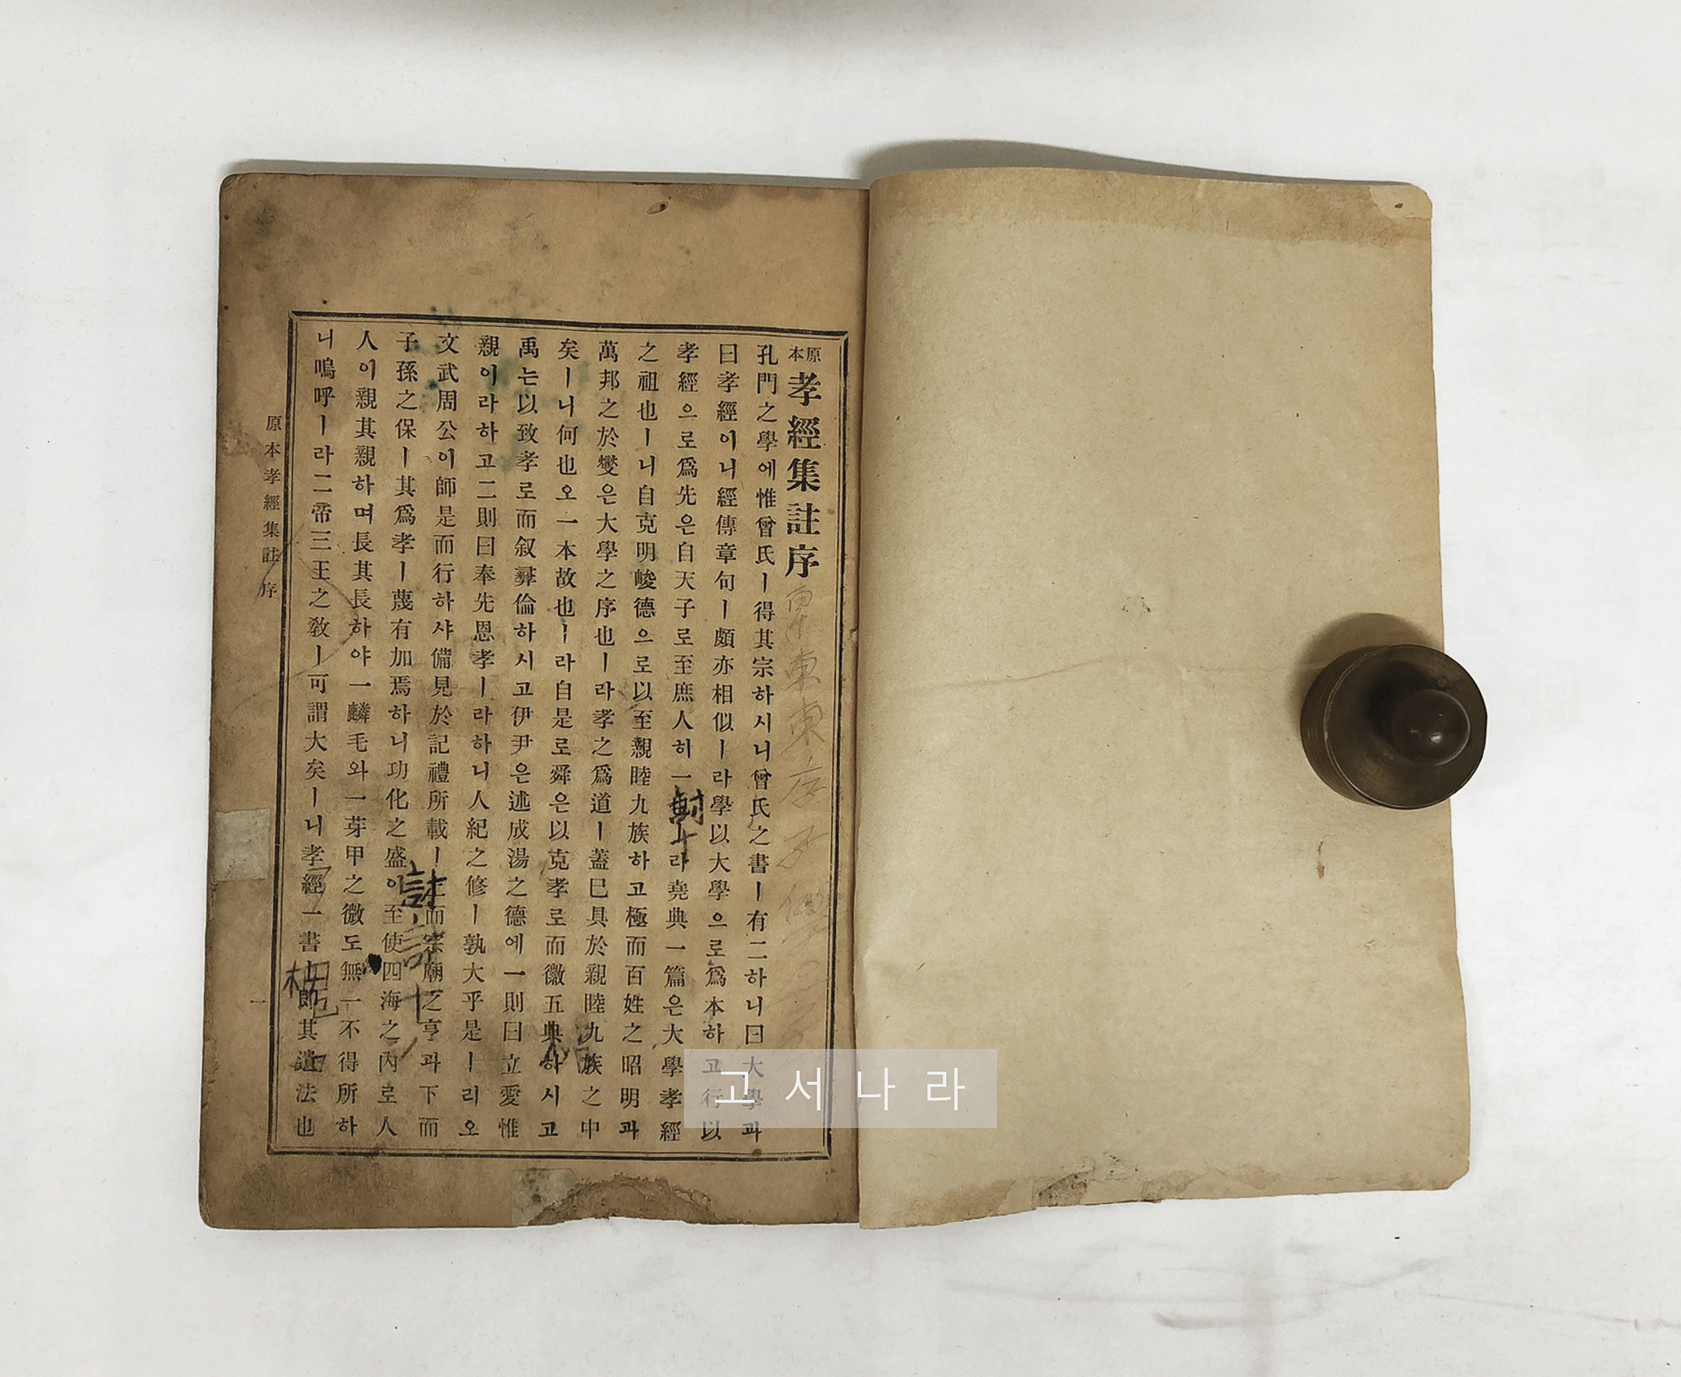 原本孝經集註序
孔門之學에惟曾氏ㅣ得其宗하시니曾氏之書ㅣ有二하니曰大學과
曰孝經이니經傳章句ㅣ頗亦相似ㅣ라學以大學으로爲本하고行以
孝經으로爲先은自天子로至庶人히一라堯典一篇은大學孝經
之祖也ㅣ니自克明峻德으로以至親睦九族하고極而百姓之昭明과
萬邦之於變은大學之序也ㅣ라孝之爲道ㅣ蓋已具於親睦九族之中
矣ㅣ니何也오一本故也ㅣ라自是로舜은以克孝로而徽五典하시고
禹는以致孝로而叙彛倫하시고伊尹은述成湯之德에一則曰立愛惟
親이라하고二則曰奉先思孝ㅣ라하니人紀之修ㅣ孰大乎是ㅣ리오
文武周公이師是而行하샤備見於記禮所載ㅣ上而宗廟之亨과下而
子孫之保ㅣ其爲孝ㅣ蔑有加焉하니功化之盛이至使四海之內로人
人이親其親하며長其長하야一麟毛와一芽甲之微도無一不得所하
니嗚呼ㅣ라二帝三王之敎ㅣ可謂大矣ㅣ니孝經一書ㅣ卽其遺法也
原本孝經集註 序
一
고서나라